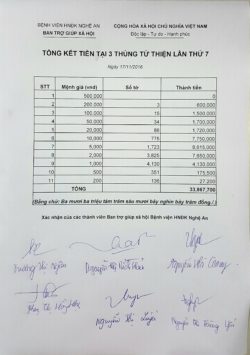 BỆNH VIỆN HNĐK NGHỆ AN
CỘNG HÒA XÃ HỘI CHỦ NGHĨA VIỆT NAM
BAN TRỢ GIÚP XÃ HỘI
Độc lập - Tự do - Hạnh phúc
TỔNG KẾT TIỀN TẠI 3 THÙNG TỪ THIỆN LẦN THỨ 7
Ngày 17/11/2016
STT Mệnh giá (vnđ) Số tờ Thành tiền
1 500,000 0
2 200,000 3 600,000
3 100,000 15 1,500,000
4 50,000 34 1,700,000
5 20,000 88 1,760,000
6 10,000 775 7,750,000
7 5,000 1,723 8,615,000
8 2,000 3,825 7,650,000
9 1,000 4,130 4,130,000
10 500 351 175,500
11 200 136 27,200
TỔNG 33,907,700
(Bằng chữ: Ba mươi ba triệu tám trăm sáu mươi bảy nghìn bảy trăm đồng./.)
Xác nhận của các thành viên Ban trợ giúp xã hội Bệnh viện HNĐK Nghệ An
Nguyễn Thị
Nguyễn Thị